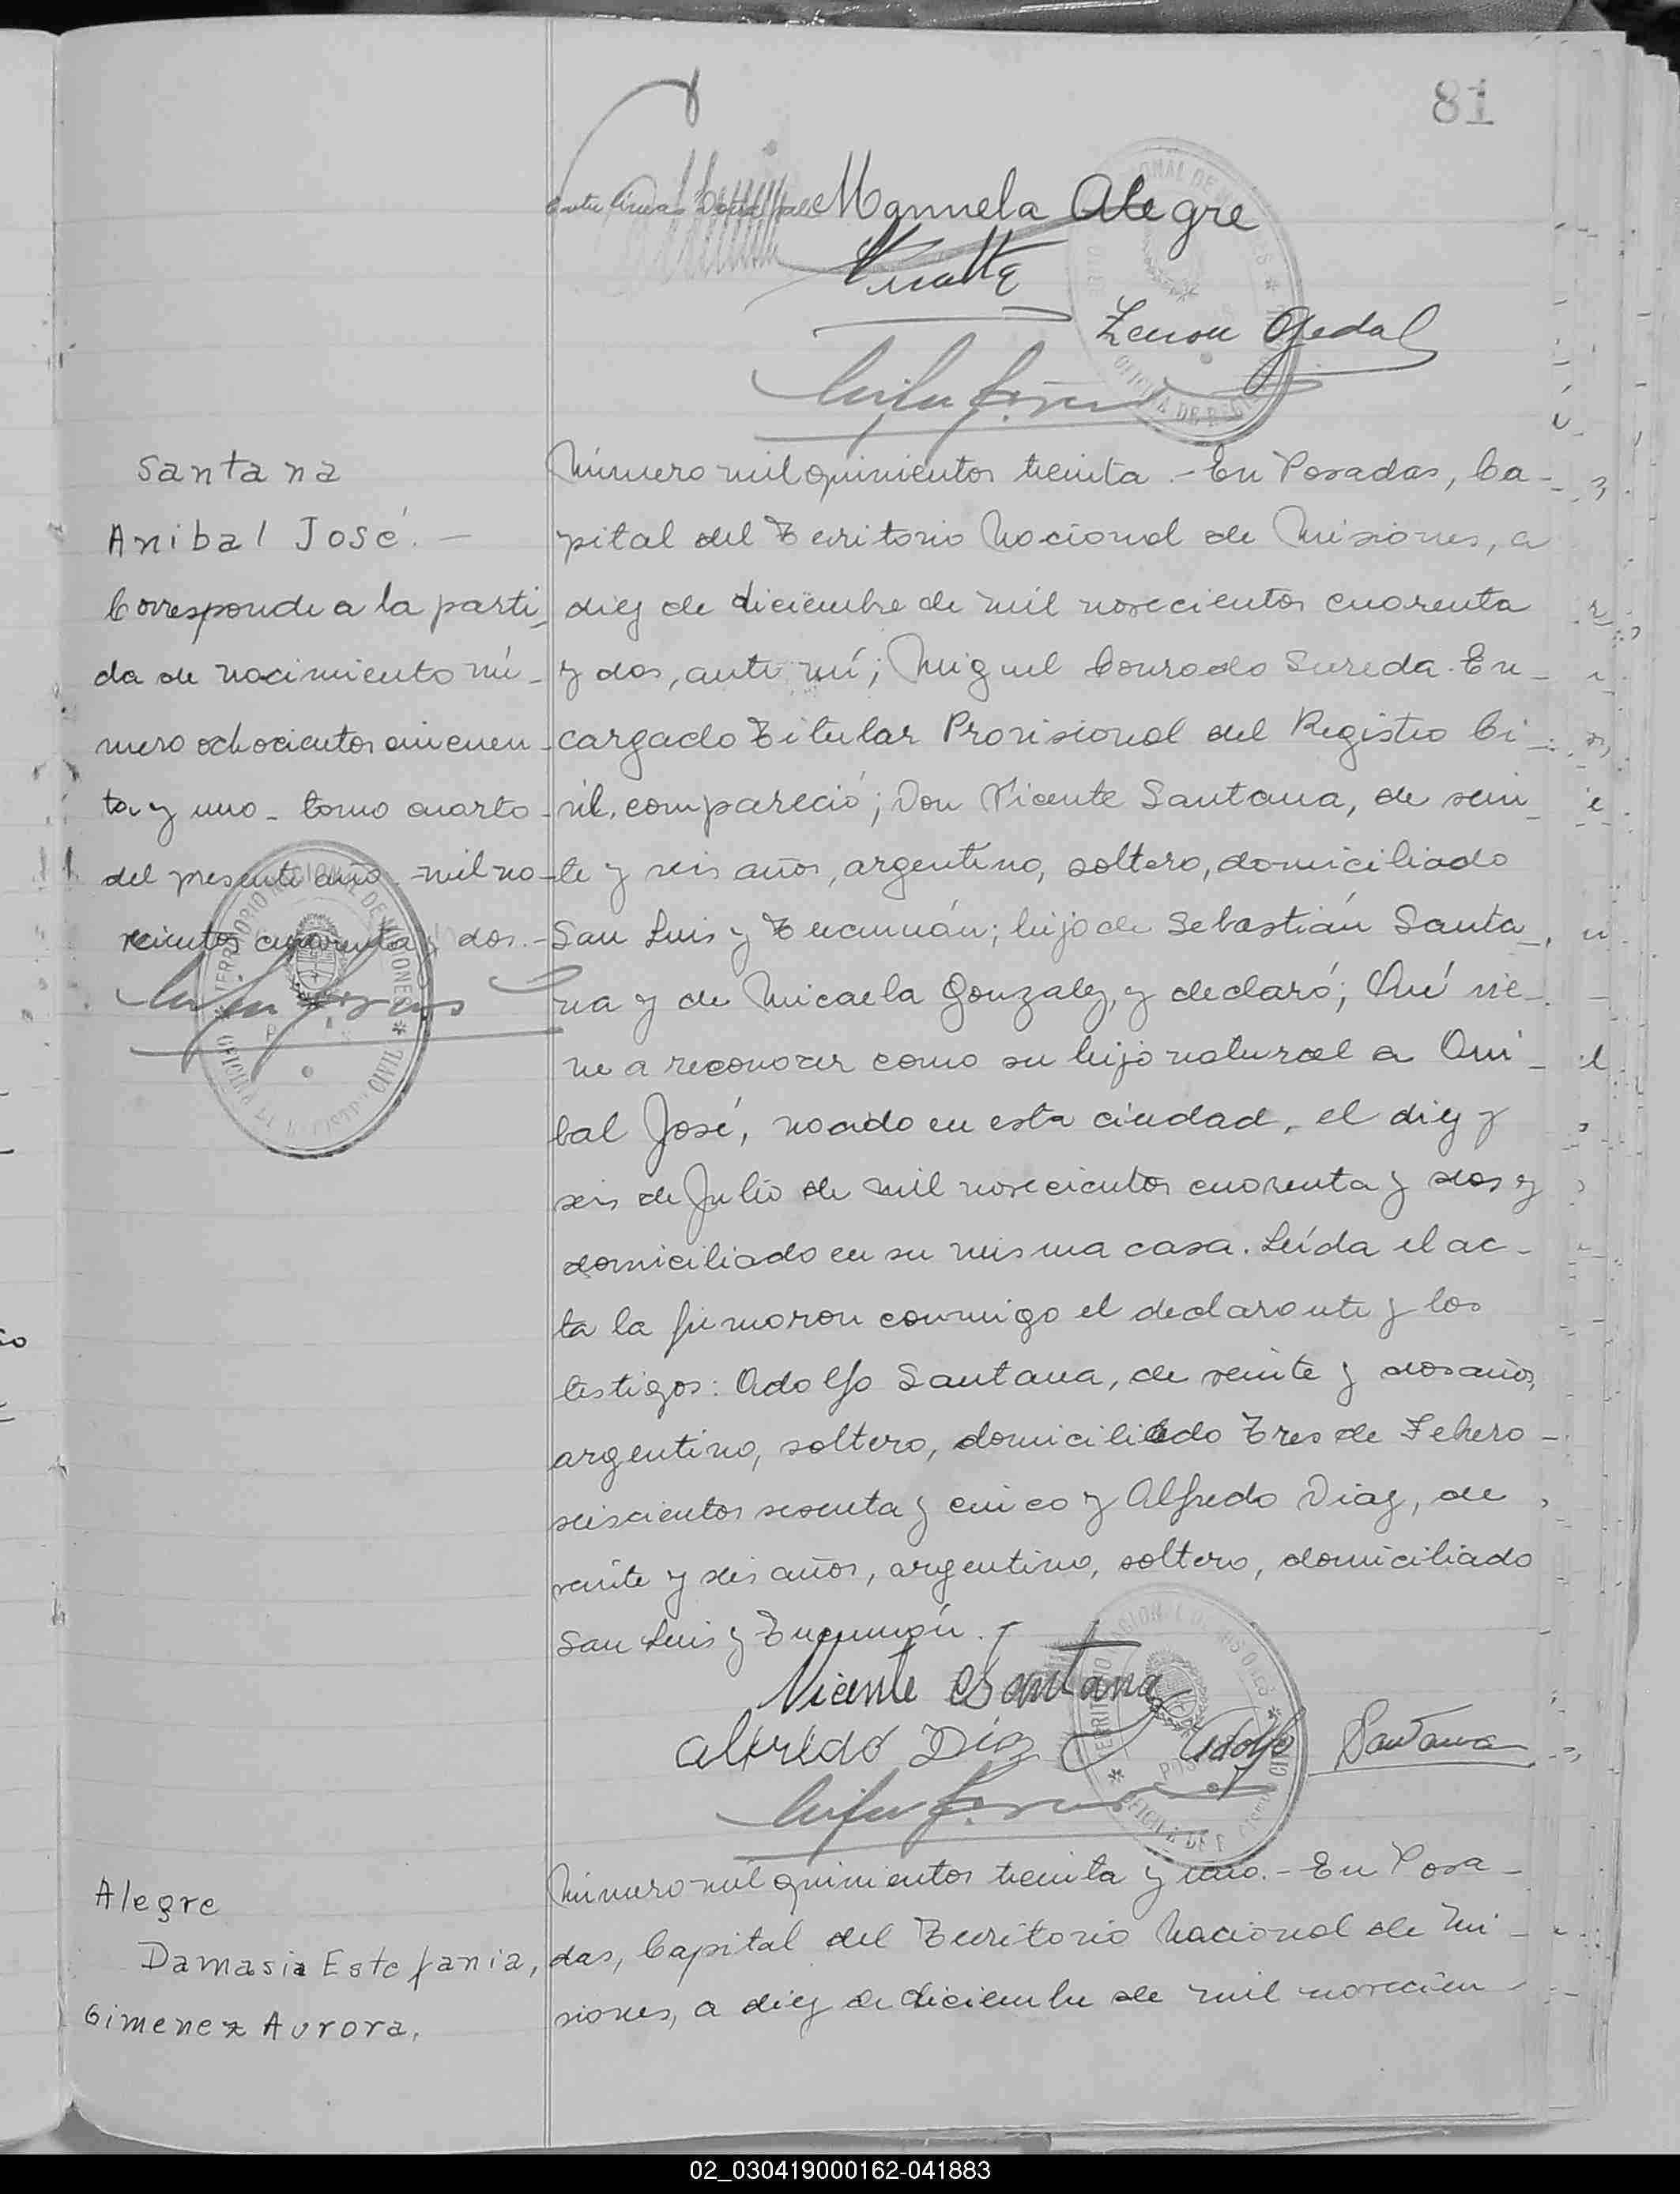 81
Entre líneas Doña vale Manuela Alegre
Zenon Ojeda
Santana
Anibal José. —
Corresponde a la parti_
da de nacimiento nú_
mero ochocientos cincuen_
ta y uno_ tomo cuarto
del presente año mil no_
vecientos cuarenta y dos.-
Número mil quinientos treinta .- En Posadas, Ca_
pital del Territorio Nacional de Misiones, a
diez de diciembre de mil novecientos cuarenta
y dos, ante mí; Miguel Conrado Sureda. En_
cargado Titular Provisional del Registro Ci_
vil, compareció; Don Vicente Santana, de vein_
te y seis años, argentino, soltero, domiciliado
San Luis y Tucumán; hijo de Sebastián Santa_
na y de Micaela Gonzalez, y declaró; Qué vie_
ne a reconocer como su hijo natural a Ani_
bal José, nacido en esta ciudad, el diez y
seis de Julio de mil novecientos cuarenta y dos y
domiciliado en su misma casa. Leída el ac_
ta la firmaron conmigo el declarante y los
testigos: Adolfo Santana, de veinte y dos años,
argentino, soltero, domiciliado Tres de Febrero_
seiscientos sesenta y cinco y Alfredo Diaz, de
veinte y seis años, argentino, soltero, domiciliado
San Luis y Tucumán.
Vicente Santana
Alfredo Diaz Adolfo Santana
Alegre
Damasia Estefania,
Gimenez Aurora,
Número mil quinientos treinta y uno.- En Posa_
das, Capital del Territorio Nacional de Mi_
siones, a diez de diciembre de mil novecien
02_030419000162-041883